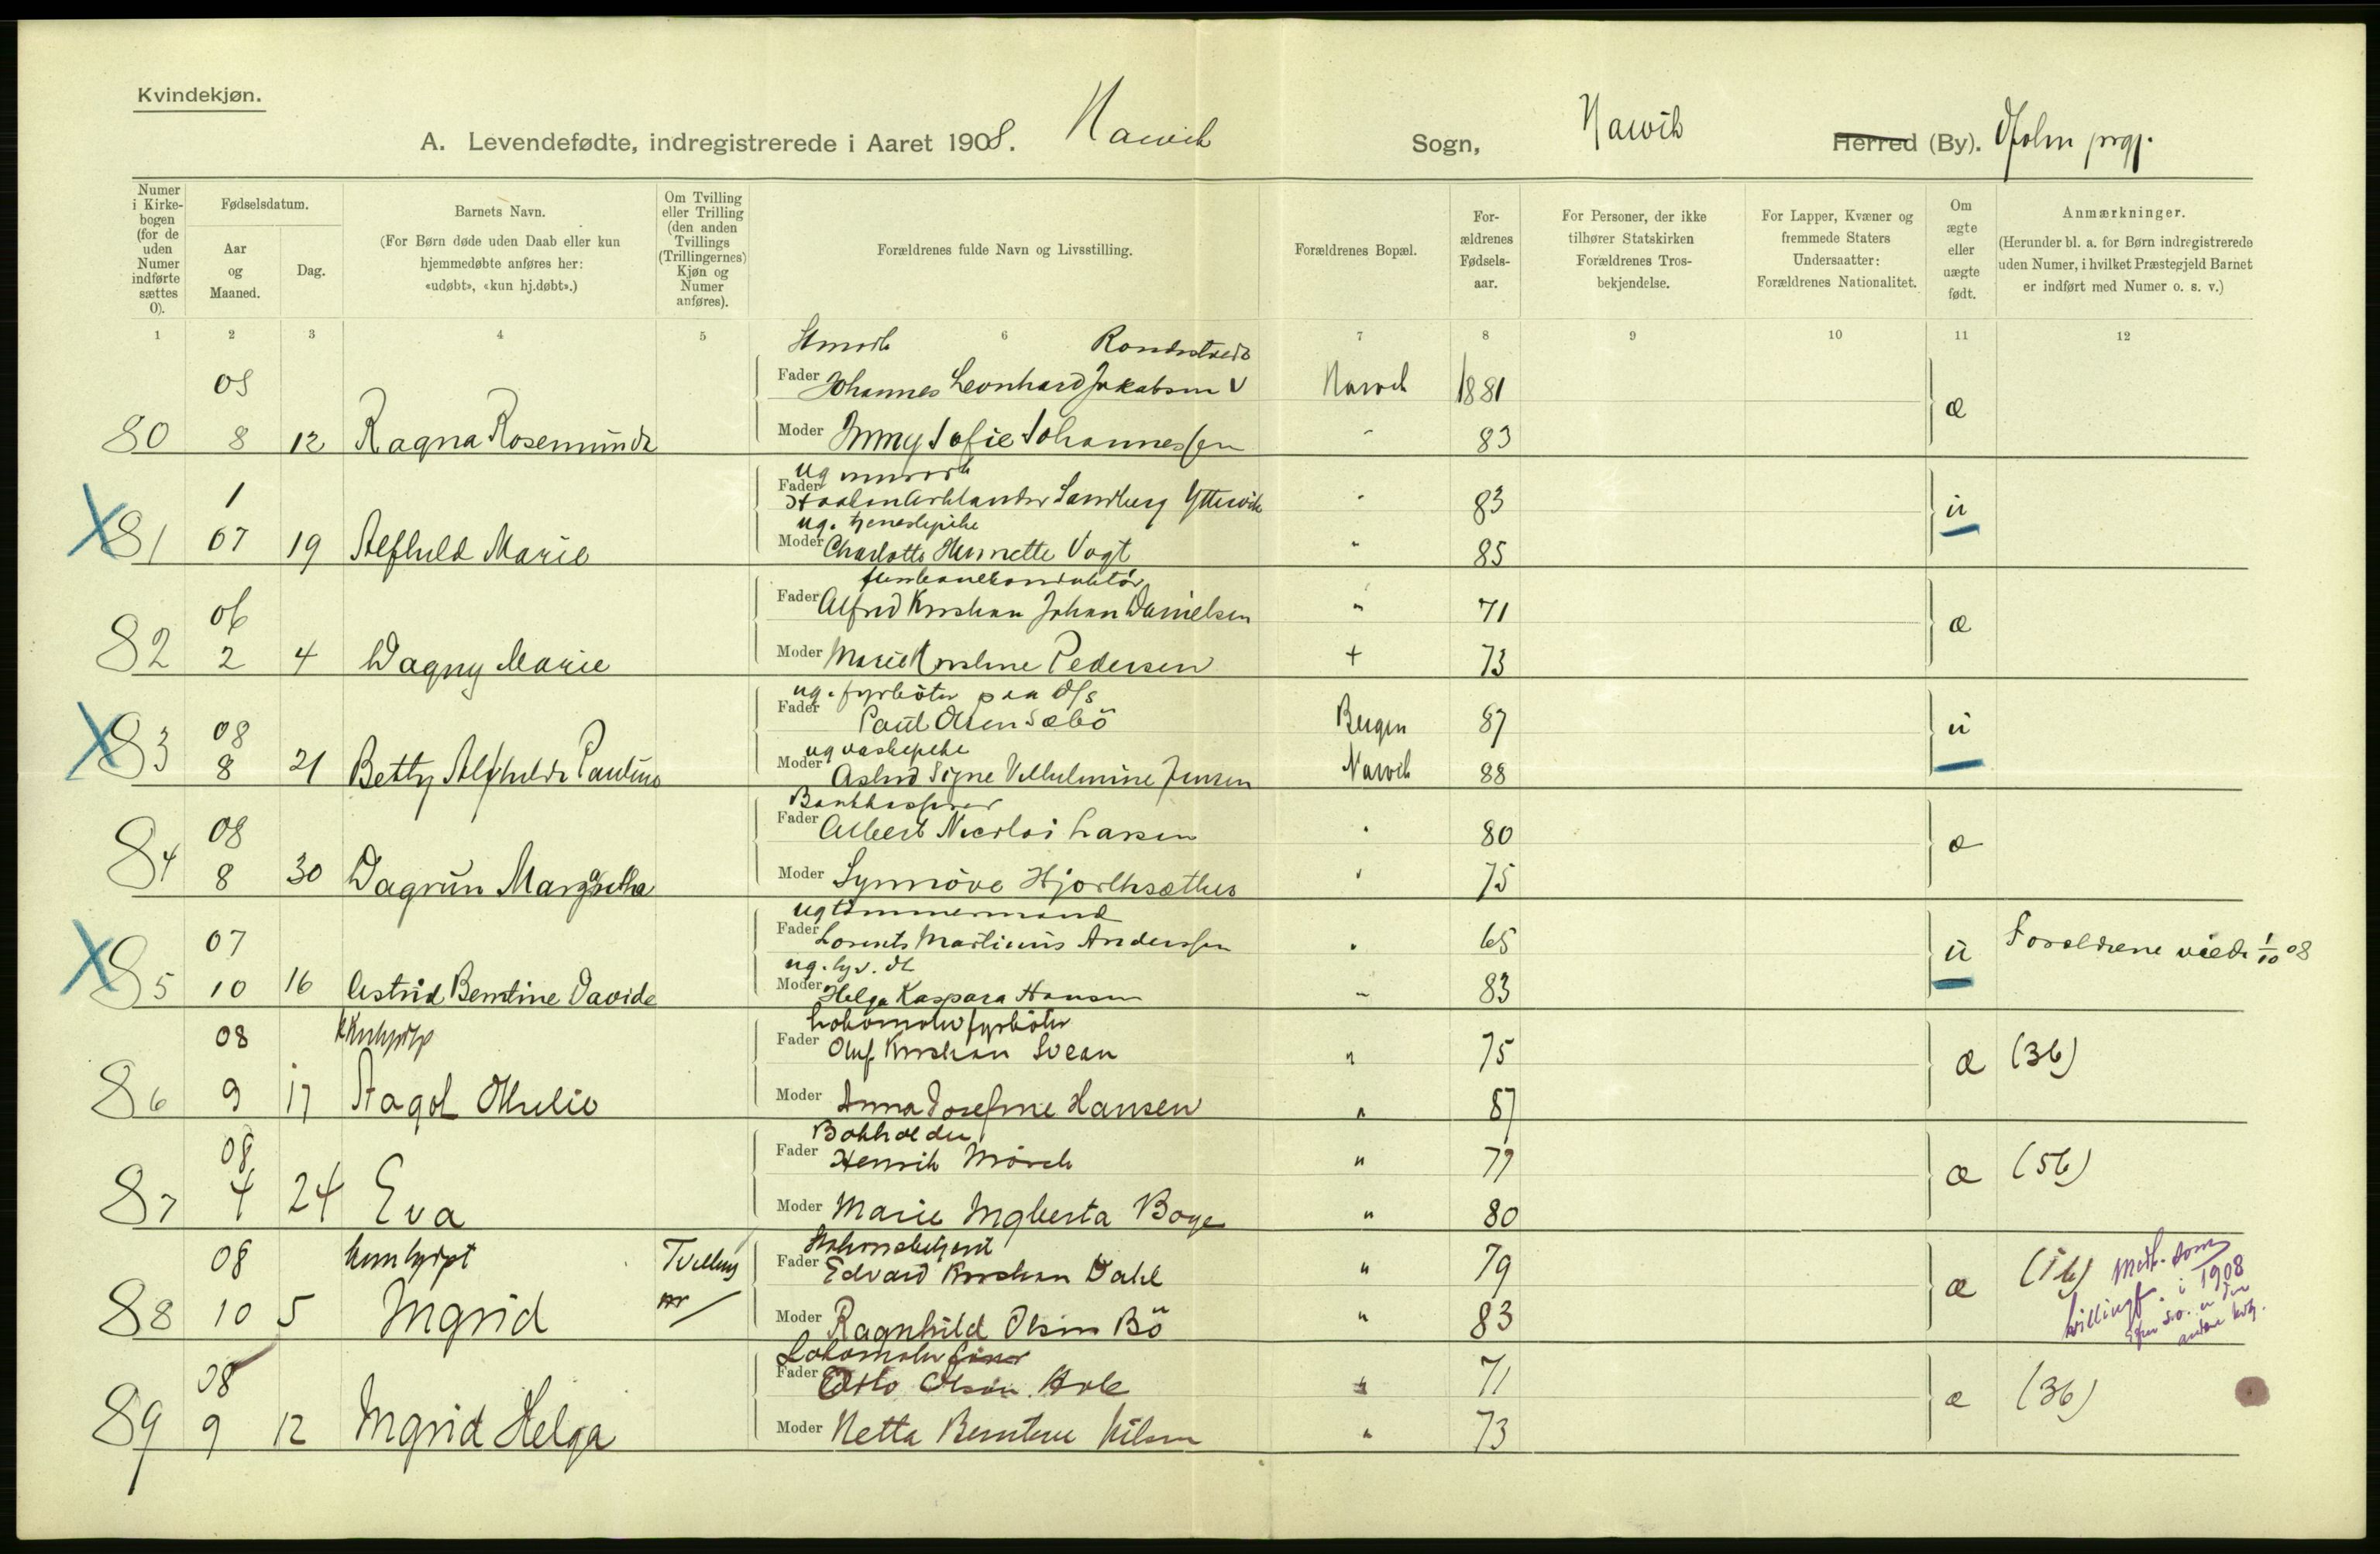 Kvindekjøn.
A. Levendefødte, indregistrerede i Aaret 1908. Narvik Sogn, Narvik Herred (By). Ofoten prgj.
Numer i Kirke-bogen (for de uden Numer indførte sættes 0).
Fødselsdatum.
Aar og Maaned.
Dag.
Barnets Navn.
(For Børn døde uden Daab eller kun hjemmedøbte anføres her: «udøbt», «kun hj.døbt».)
Om Tvilling eller Trilling (den anden Tvillings (Trillingernes) Kjøn og Numer anføres).
Forældrenes fulde Navn og Livsstilling.
Forældrenes Bopæl.
For-ældrenes Fødsels-aar.
For Personer, der ikke tilhører Statskirken Forældrenes Tros-bekjendelse.
For Lapper, Kvæner og fremmede Staters Undersaatter: Forældrenes Nationalitet.
Om ægte eller uægte født.
Anmærkninger.
(Herunder bl. a. for Børn indregistrerede uden Numer, i hvilket Præstegjeld Barnet er indført med Numer o. s. v.)
1 2 3 4 5 6 7 8 9 10 11 12
08
Fader Johannes Leonhard Jakobsen Narvik 1881
80 8 12 Ragna Rosemunda Moder Jenny Sofie Johannessen 83 æ
1 Fader Haakon Sandberg Yttervik 83
ug. tjenestepike
X 81 07 19 Alfhild Marie Moder Charlotte Henriette Vogt 85 u
06 Fader Alfred Kristian Johan Danielsen " 71
82 2 4 Dagny Marie Moder Marie Kristine Pedersen + 73 æ
ug. fyrbøter paa D/S
08 Fader Paul Olsen Sæbö Bergen 87
ug vaskepike
X 83 8 21 Betty Alfhilda Pauline Moder Astrid Signe Vilhelmine Jensen Narvik 88 u
Bankkasserer
08 Fader Albert Nicolai Larsen 80
84 8 30 Dagrun Margaretha Moder Synnöve Hjorthsæther 75 æ
ug tømmermand
07 Fader Lorents Martinius Anderssen 65
X 85 10 16 Astrid Berntine Davida Moder Helga Kaspara Hansen 83 u Forældrene viede 1/10 08
Lokomotivfyrbøter
08 Fader Oluf Kristian Svean " 75
86 9 17 Moder Anna Josefine Hansen " 87 æ (36)
Bokholder
08 Fader Henrik Mörch " 77
87 4 24 Eva Moder Marie Ingberta Boye " 80 æ (56)
08 Tvilling Fader Edvard Kristian Dahl " 79
88 10 5 Ingrid Moder Ragnhild Olsen Bö " 83 æ (16) Medt. som tvillingf. i 1908
08 Fader Otto Olsen Hole " 71
89 9 12 Ingrid Helga Moder Netta Berntine Nilsen " 73 æ (36)